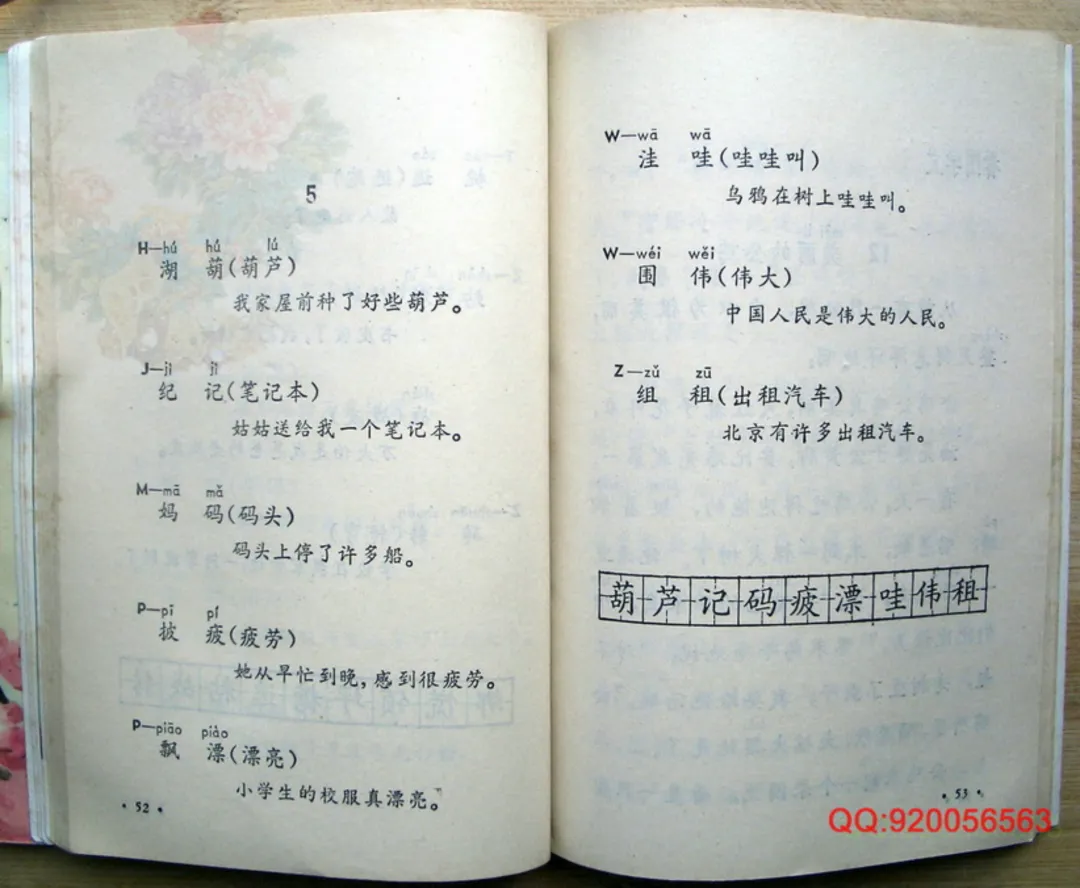 5
H—hú hú lú
湖 葫(葫芦)
我家屋前种了好些葫芦。
J—jì jì
纪 记(笔记本)
姑姑送给我一个笔记本。
M—mā mǎ
妈 码(码头)
码头上停了许多船。
P—pī pí
披 疲(疲劳)
她从早忙到晚,感到很疲劳。
P—piāo piào
飘 漂(漂亮)
小学生的校服真漂亮。
·52·
W—wā wā
洼 哇(哇哇叫)
乌鸦在树上哇哇叫。
W—wéi wěi
围 伟(伟大)
中国人民是伟大的人民。
Z—zǔ zū
组 租(出租汽车)
北京有许多出租汽车。
葫芦记码疲漂哇伟租
·53·
QQ:920056563